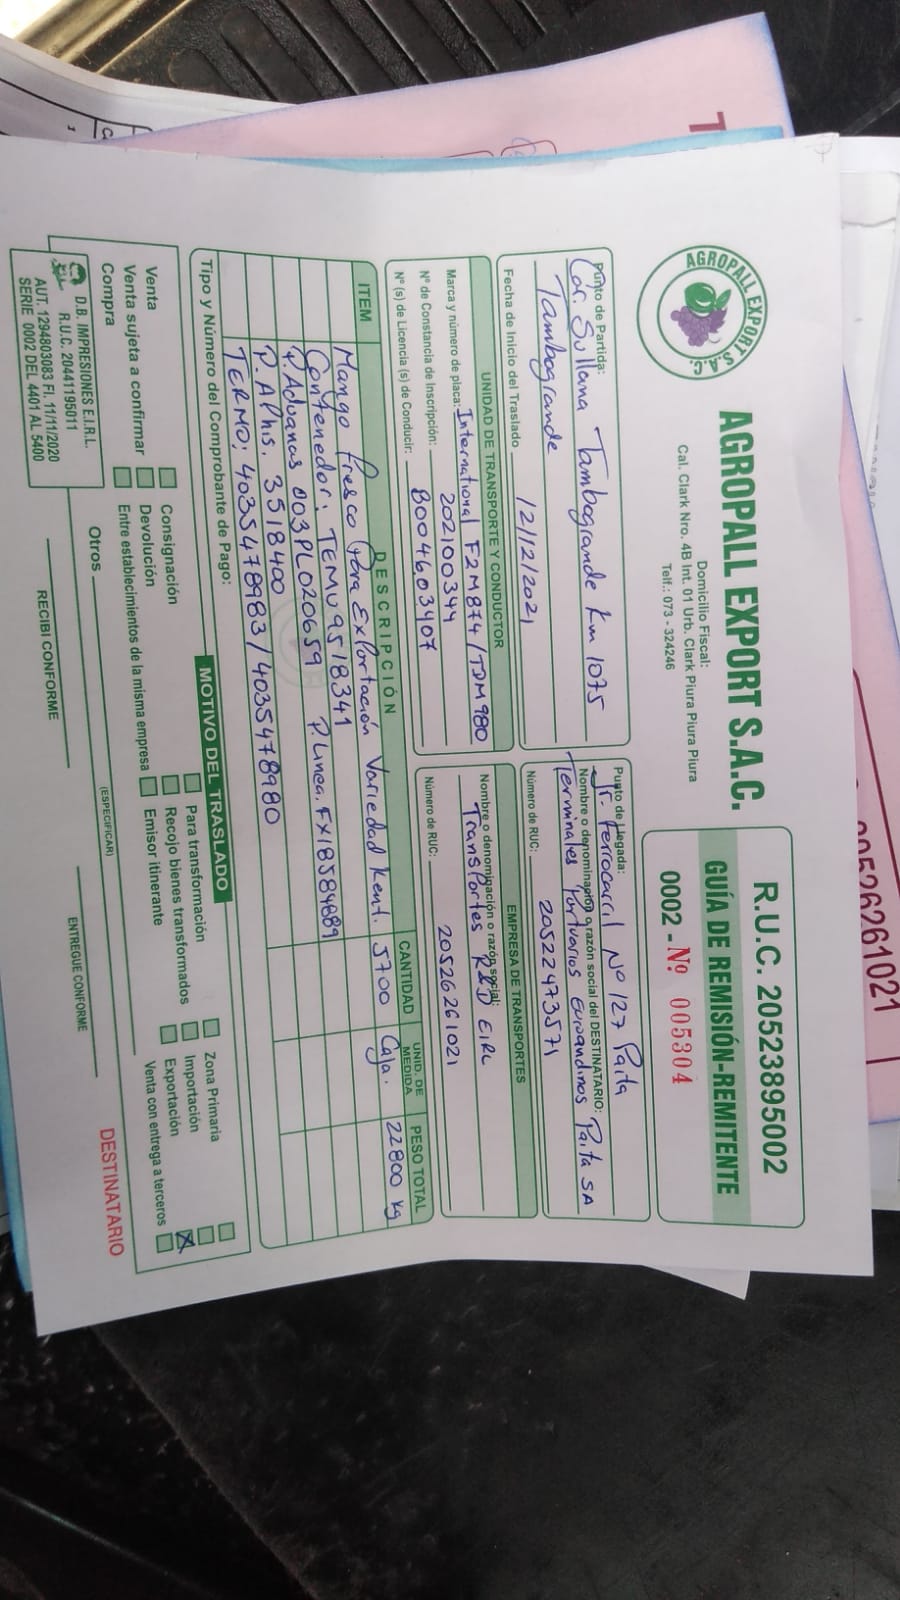 AGROPALL EXPORT S.A.C.
AGROPALL EXPORT S.A.C.
Domicilio Fiscal:
Cal. Clark Nro. 4B Int. 01 Urb. Clark Piura Piura Piura
Telf.: 073 - 324246
R.U.C. 20523895002
GUÍA DE REMISIÓN-REMITENTE
0002 - Nº 005304
Punto de Partida:
Car. Sullana Tambogrande Km 1075
Tambogrande
Fecha de Inicio del Traslado 12/12/2021
Punto de Llegada:
Jr. Ferrocarril Nº 127 Paita
Nombre o denominación o razón social del DESTINATARIO:
Terminales Portuarios Euroandinos Paita SA
Número de RUC: 20522473571
UNIDAD DE TRANSPORTE Y CONDUCTOR
Marca y número de placa: International F2M874/TDM980
Nº de Constancia de Inscripción: 202100344
Nº (s) de Licencia (s) de Conducir: B004603407
EMPRESA DE TRANSPORTES
Nombre o denominación o razón social:
Transportes R&D EIRL
Número de RUC: 20526261021
ITEM DESCRIPCIÓN CANTIDAD UNID. DE MEDIDA PESO TOTAL
Mango fresco para Exportación Variedad Kent. 5700 Caja. 22800 Kg
Contenedor: TEMU9518341
P. Aduanas 003PL020659 P. Linea. FX18584889
P. Aphis. 3518400
TERMO: 4035478983/4035478980
Tipo y Número del Comprobante de Pago:
MOTIVO DEL TRASLADO
Venta
Venta sujeta a confirmar
Compra
Consignación
Devolución
Entre establecimientos de la misma empresa
Para transformación
Recojo bienes transformados
Emisor itinerante
Zona Primaria
Importación
Exportación
Venta con entrega a terceros
Otros
(ESPECIFICAR)
D.B. IMPRESIONES E.I.R.L.
R.U.C. 20441195011
AUT. 1294803083 FI. 11/11/2020
SERIE 0002 DEL 4401 AL 5400
RECIBI CONFORME
ENTREGUE CONFORME
DESTINATARIO
20526261021